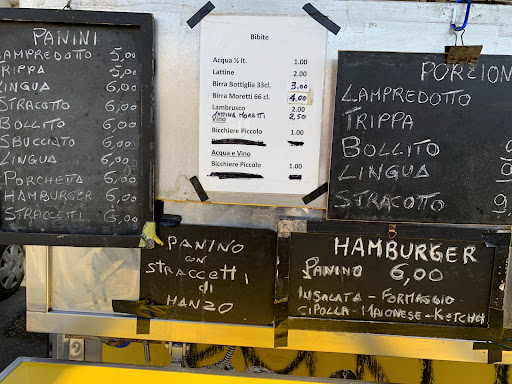 PANINI
LAMPREDOTTO 5,00
TRIPPA 5,00
LINGUA 6,00
STRACOTTO 6,00
BOLLITO 6,00
SBUCCIATO 6,00
LINGUA 6,00
PORCHETTA 6,00
HAMBURGER 6,00
STRACCETTI 6,00
Bibite
Acqua ½ lt. 1.00
Lattine 2.00
Birra Bottiglia 33cl. 3,00
Birra Moretti 66 cl. 4,00
Lambrusco 2.00
LATTINA MORETTI 2,50
Vino
Bicchiere Piccolo 1.00
Acqua e Vino
Bicchiere Piccolo 1.00
PORZION
LAMPREDOTTO
TRIPPA
BOLLITO 9
LINGUA 9
STRACOTTO 9,
PANINO
CON
STRACCETTI
di
MANZO
HAMBURGER
PANINO 6,00
INSALATA - FORMAGGIO
CIPOLLA - MAIONESE - KETCHO